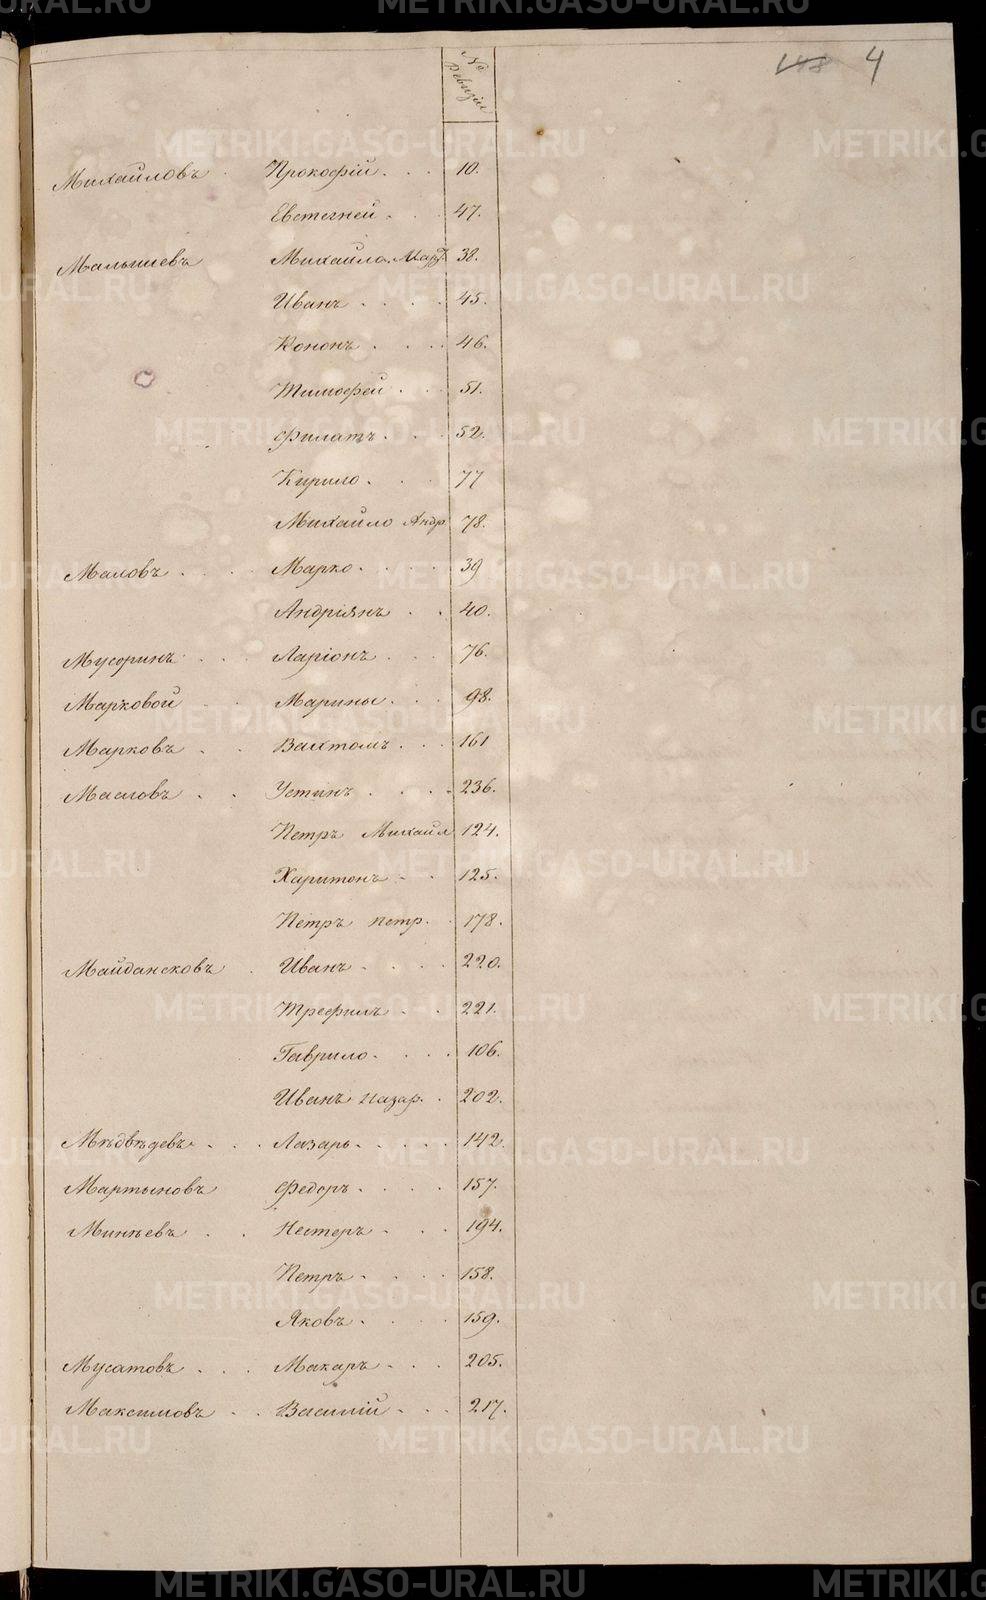 № Ревизіи
148 4
Михайловъ . Прокофій . . . 10.
Евстегней . . . 47.
Малышевъ Михайло Мар 38.
Иванъ . . . . 45.
Кононъ . . . . 46.
Тимофей . . . 51.
Филатъ . . . 52.
Кирило . . . 77
Михайло Андр 78.
Маловъ . . . Марко . . . . 39
Андріянъ . . 40.
Мусоринъ . . . Ларіонъ . . . 76.
Марковой . . Марины . . . 98.
Марковъ . . Вахтомъ . . . 161
Масловъ . . Устинъ . . . . 236.
Петръ Михайл 124.
Харитонъ . . 125.
Петръ петр. . 178.
Майдансковъ . Иванъ . . . . 220.
Трефилъ . . 221.
Гаврило . . . . 106.
Иванъ назар. . 202.
Мѣдвѣдевъ . . . Лазарь . . . . 142.
Мартыновъ Федоръ . . . . 157.
Минѣевъ . . Нестеръ . . . 194.
Петръ . . . . 158.
Яковъ . . . . 159.
Мусатовъ . . . Макаръ . . . 205.
Максимовъ . . Василій . . . 217.
METRIKI.GASO-URAL.RU